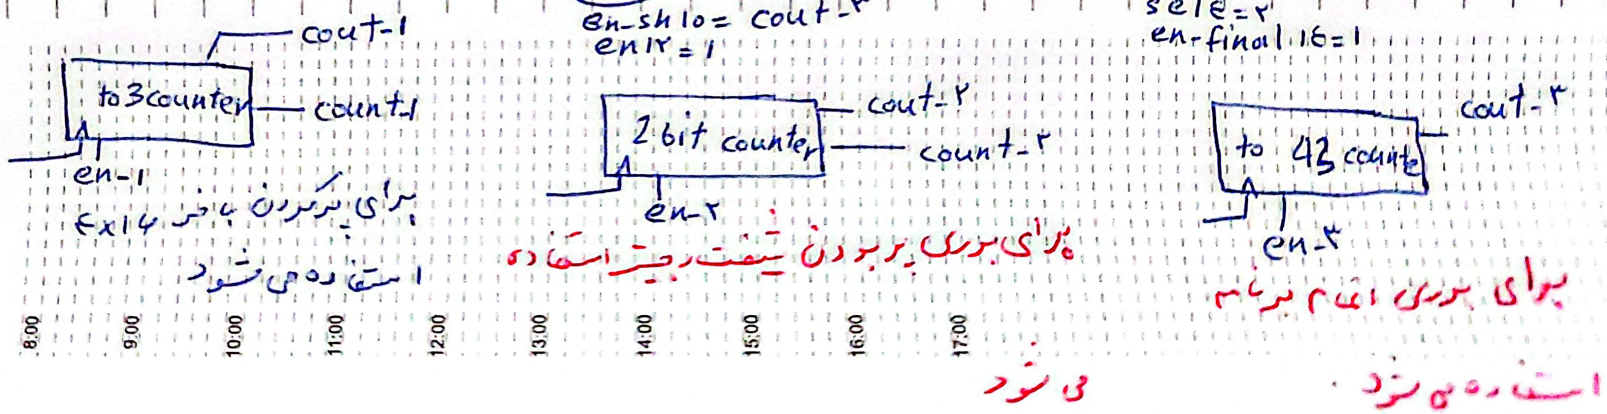 cout-۱
to 3 counter
count-۱
en-۱
برای پرکردن بافر ۴x۱۶
استفاده می شود
en-sh10 = cout-۲
en۱۲ = ۱
cout-۲
2 bit counter
count-۲
en-۲
برای بررسی پر بودن شیفت رجیستر استفاده
می شود
sel۴ = ۲
en-final 1۴ = ۱
cout-۳
to 43 counte
en-۳
برای بررسی اتمام برنامه
استفاده می شود.
8:00
9:00
10:00
11:00
12:00
13:00
14:00
15:00
16:00
17:00